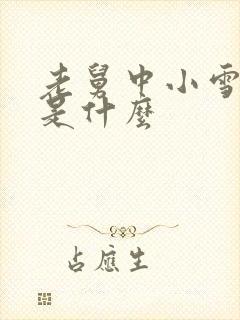 老舅中小雪
是什麼
占應生